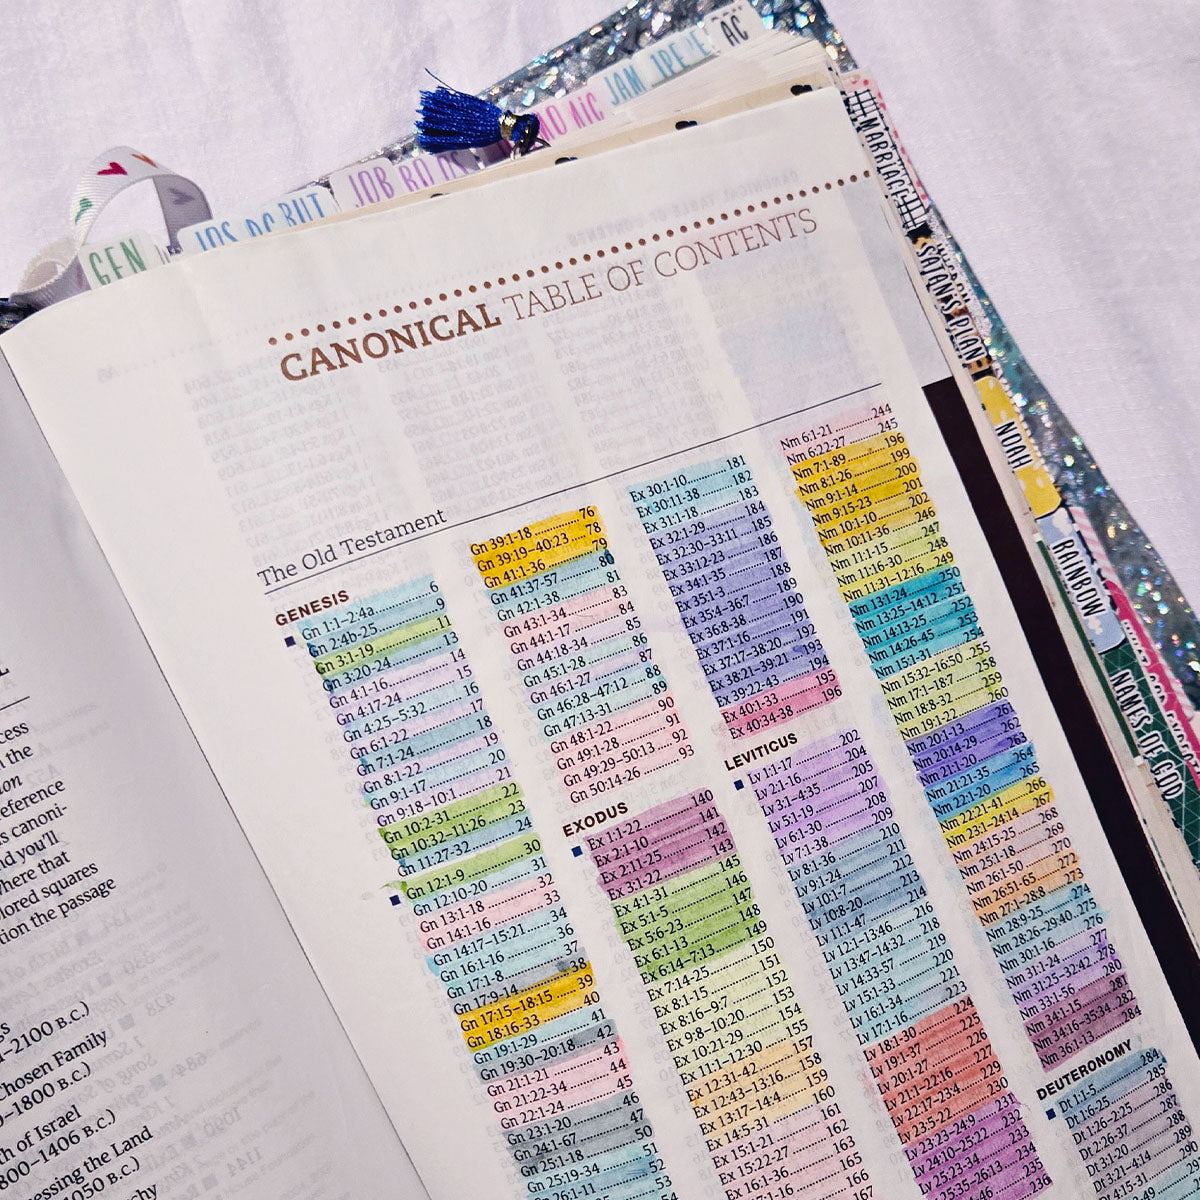 GEN
JOS
BUT
JOB
JAM
1PE
AC
#MARRIAGE
SATAN'S PLAN
NOAH
RAINBOW
NAMES OF GOD
CANONICAL TABLE OF CONTENTS
The Old Testament
GENESIS
Gn 1:1–2:4a 6
Gn 2:4b-25 9
Gn 3:1-19 11
Gn 3:20-24 13
Gn 4:1-16 14
Gn 4:17-24 15
Gn 4:25–5:32 16
Gn 6:1-22 17
Gn 7:1-24 18
Gn 8:1-22 19
Gn 9:1-17 20
Gn 9:18–10:1 21
Gn 10:2-31 22
Gn 10:32–11:26 23
Gn 11:27-32 24
Gn 12:1-9 30
Gn 12:10-20 31
Gn 13:1-18 32
Gn 14:1-16 33
Gn 14:17–15:21 34
Gn 16:1-16 36
Gn 17:1-8 37
Gn 17:9-14 38
Gn 17:15–18:15 39
Gn 18:16-33 40
Gn 19:1-29 41
Gn 19:30–20:18 42
Gn 21:1-21 43
Gn 21:22-34 44
Gn 22:1-24 45
Gn 23:1-20 46
Gn 24:1-67 47
Gn 25:1-18 50
Gn 25:19-34 51
52
53
Gn 39:1-18 76
Gn 39:19–40:23 78
Gn 41:1-36 79
Gn 41:37-57 80
Gn 42:1-38 81
Gn 43:1-34 83
Gn 44:1-17 84
Gn 44:18-34 85
Gn 45:1-28 86
Gn 46:1-27 87
Gn 46:28–47:12 88
Gn 47:13-31 89
Gn 48:1-22 90
Gn 49:1-28 91
Gn 49:29–50:13 92
Gn 50:14-26 93
EXODUS
Ex 1:1-22 140
Ex 2:1-10 141
Ex 2:11-25 142
Ex 3:1-22 143
Ex 4:1-31 145
Ex 5:1-5 146
Ex 5:6-23 147
Ex 6:1-13 148
Ex 6:14–7:13 149
Ex 7:14-25 150
Ex 8:1-15 151
Ex 8:16–9:7 152
Ex 9:8–10:20 153
Ex 10:21-29 154
Ex 11:1–12:30 155
Ex 12:31-42 157
Ex 12:43–13:16 158
Ex 13:17–14:4 159
Ex 14:5-31 160
Ex 15:1-21 161
Ex 15:22-27 162
Ex 16:1-36 163
165
166
167
Ex 30:1-10 181
Ex 30:11-38 182
Ex 31:1-18 183
Ex 32:1-29 184
Ex 32:30–33:11 185
Ex 33:12-23 186
Ex 34:1-35 187
Ex 35:1-3 188
Ex 35:4–36:7 189
Ex 36:8-38 190
Ex 37:1-16 191
Ex 37:17–38:20 192
Ex 38:21–39:21 193
Ex 39:22-43 194
Ex 40:1-33 195
Ex 40:34-38 196
LEVITICUS
Lv 1:1-17 202
Lv 2:1-16 204
Lv 3:1–4:35 205
Lv 5:1-19 207
Lv 6:1-30 208
Lv 7:1-38 209
Lv 8:1-36 210
Lv 9:1-24 211
Lv 10:1-7 212
Lv 10:8-20 213
Lv 11:1-47 214
Lv 12:1–13:46 216
Lv 13:47–14:32 218
Lv 14:33-57 219
Lv 15:1-33 220
Lv 16:1-34 221
Lv 17:1-16 223
Lv 18:1-30 224
Lv 19:1-37 225
Lv 20:1-27 226
Lv 21:1–22:16 227
Lv 22:17–23:4 229
Lv 23:5-22 230
Lv 23:23–24:9 231
Lv 24:10–25:22 232
Lv 25:23-34 233
Lv 25:35–26:13 234
235
236
Nm 6:1-21 244
Nm 6:22-27 245
Nm 7:1-89 196
Nm 8:1-26 199
Nm 9:1-14 200
Nm 9:15-23 201
Nm 10:1-10 202
Nm 10:11-36 246
Nm 11:1-15 247
Nm 11:16-30 248
Nm 11:31–12:16 249
Nm 13:1-24 250
Nm 13:25–14:12 251
Nm 14:13-25 252
Nm 14:26-45 253
Nm 15:1-31 254
Nm 15:32–16:50 255
Nm 17:1–18:7 258
Nm 18:8-32 259
Nm 19:1-22 260
Nm 20:1-13 261
Nm 20:14-29 262
Nm 21:1-20 263
Nm 21:21-35 264
Nm 22:1-20 265
Nm 22:21-41 266
Nm 23:1–24:14 267
Nm 24:15-25 268
Nm 25:1-18 269
Nm 26:1-50 270
Nm 26:51-65 272
Nm 27:1–28:8 273
Nm 28:9-25 274
Nm 28:26–29:40 275
Nm 30:1-16 276
Nm 31:1-24 277
Nm 31:25–32:42 278
Nm 33:1-56 280
Nm 34:1-15 281
Nm 34:16–35:34 282
Nm 36:1-13 284
DEUTERONOMY
Dt 1:1-5 284
Dt 1:6-25 285
Dt 1:26–2:25 286
Dt 2:26-37 287
Dt 3:1-20 288
Dt 3:21–4:14 289
the
eference
s canoni-
nd you'll
where that
lored squares
tion the passage
–2100 B.C.)
Chosen Family
–1800 B.C.)
of Israel
1800–1406 B.C.)
the Land
1050 B.C.)